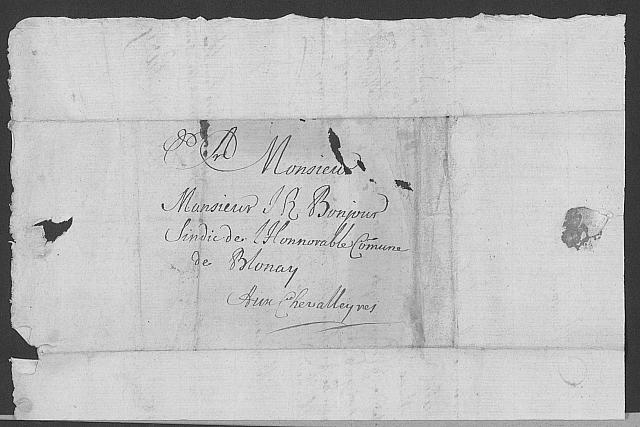 A Monsieur
Monsieur J R Bonjour
Sindic de l'Honnorable Comune
de Blonay
Aux Chevalleyres